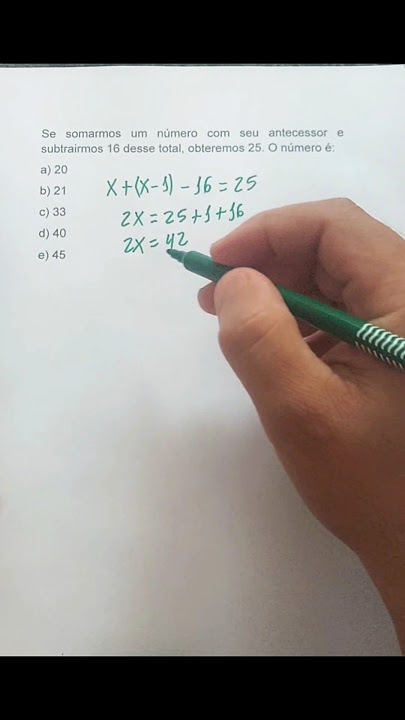 Se somarmos um número com seu antecessor e
subtrairmos 16 desse total, obteremos 25. O número é:
a) 20
b) 21
c) 33
d) 40
e) 45
X+(X-1)-16=25
2X=25+1+16
2X=42